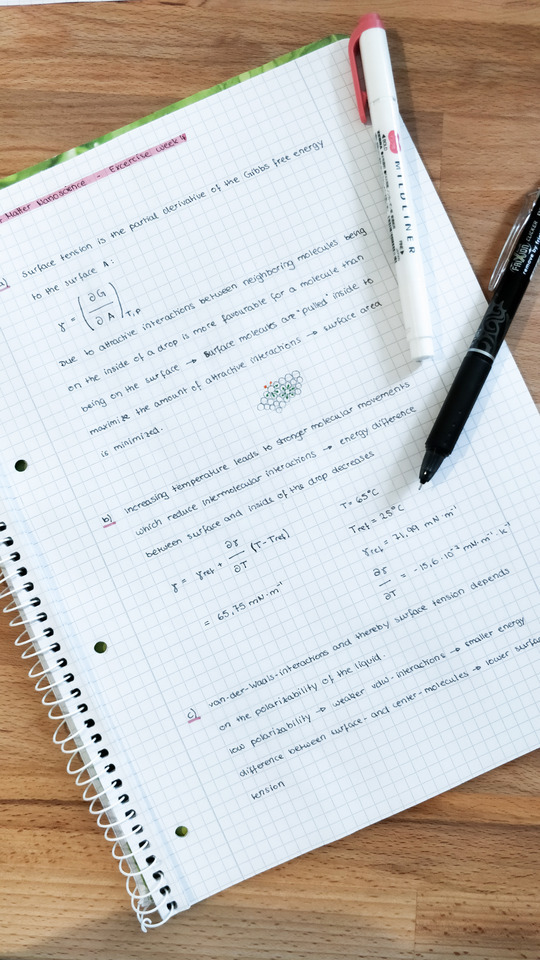 Matter Nanoscience - Excercise week 4
a) Surface tension is the partial derivative of the Gibbs free energy
to the surface A:
γ = (∂G/∂A)T,P
Due to attractive interactions between neighboring molecules being
on the inside of a drop is more favourable for a molecule than
being on the surface → surface molecules are "pulled" inside to
maximize the amount of attractive interactions → surface area
is minimized.
b) Increasing temperature leads to stronger molecular movements
which reduce intermolecular interactions → energy difference
between surface and inside of the drop decreases
γ = γref + ∂γ/∂T (T-Tref)
= 65,75 mN·m⁻¹
T = 65°C
Tref = 25°C
γref = 71,99 mN·m⁻¹
∂γ/∂T = -15,6·10⁻² mN·m⁻¹·K⁻¹
c) van-der-Waals-interactions and thereby surface tension depends
on the polarizability of the liquid.
low polarizability → weaker vdW-interactions → smaller energy
difference between surface- and center-molecules → lower surface
tension
MILDLINER
FRIXION CLICKER